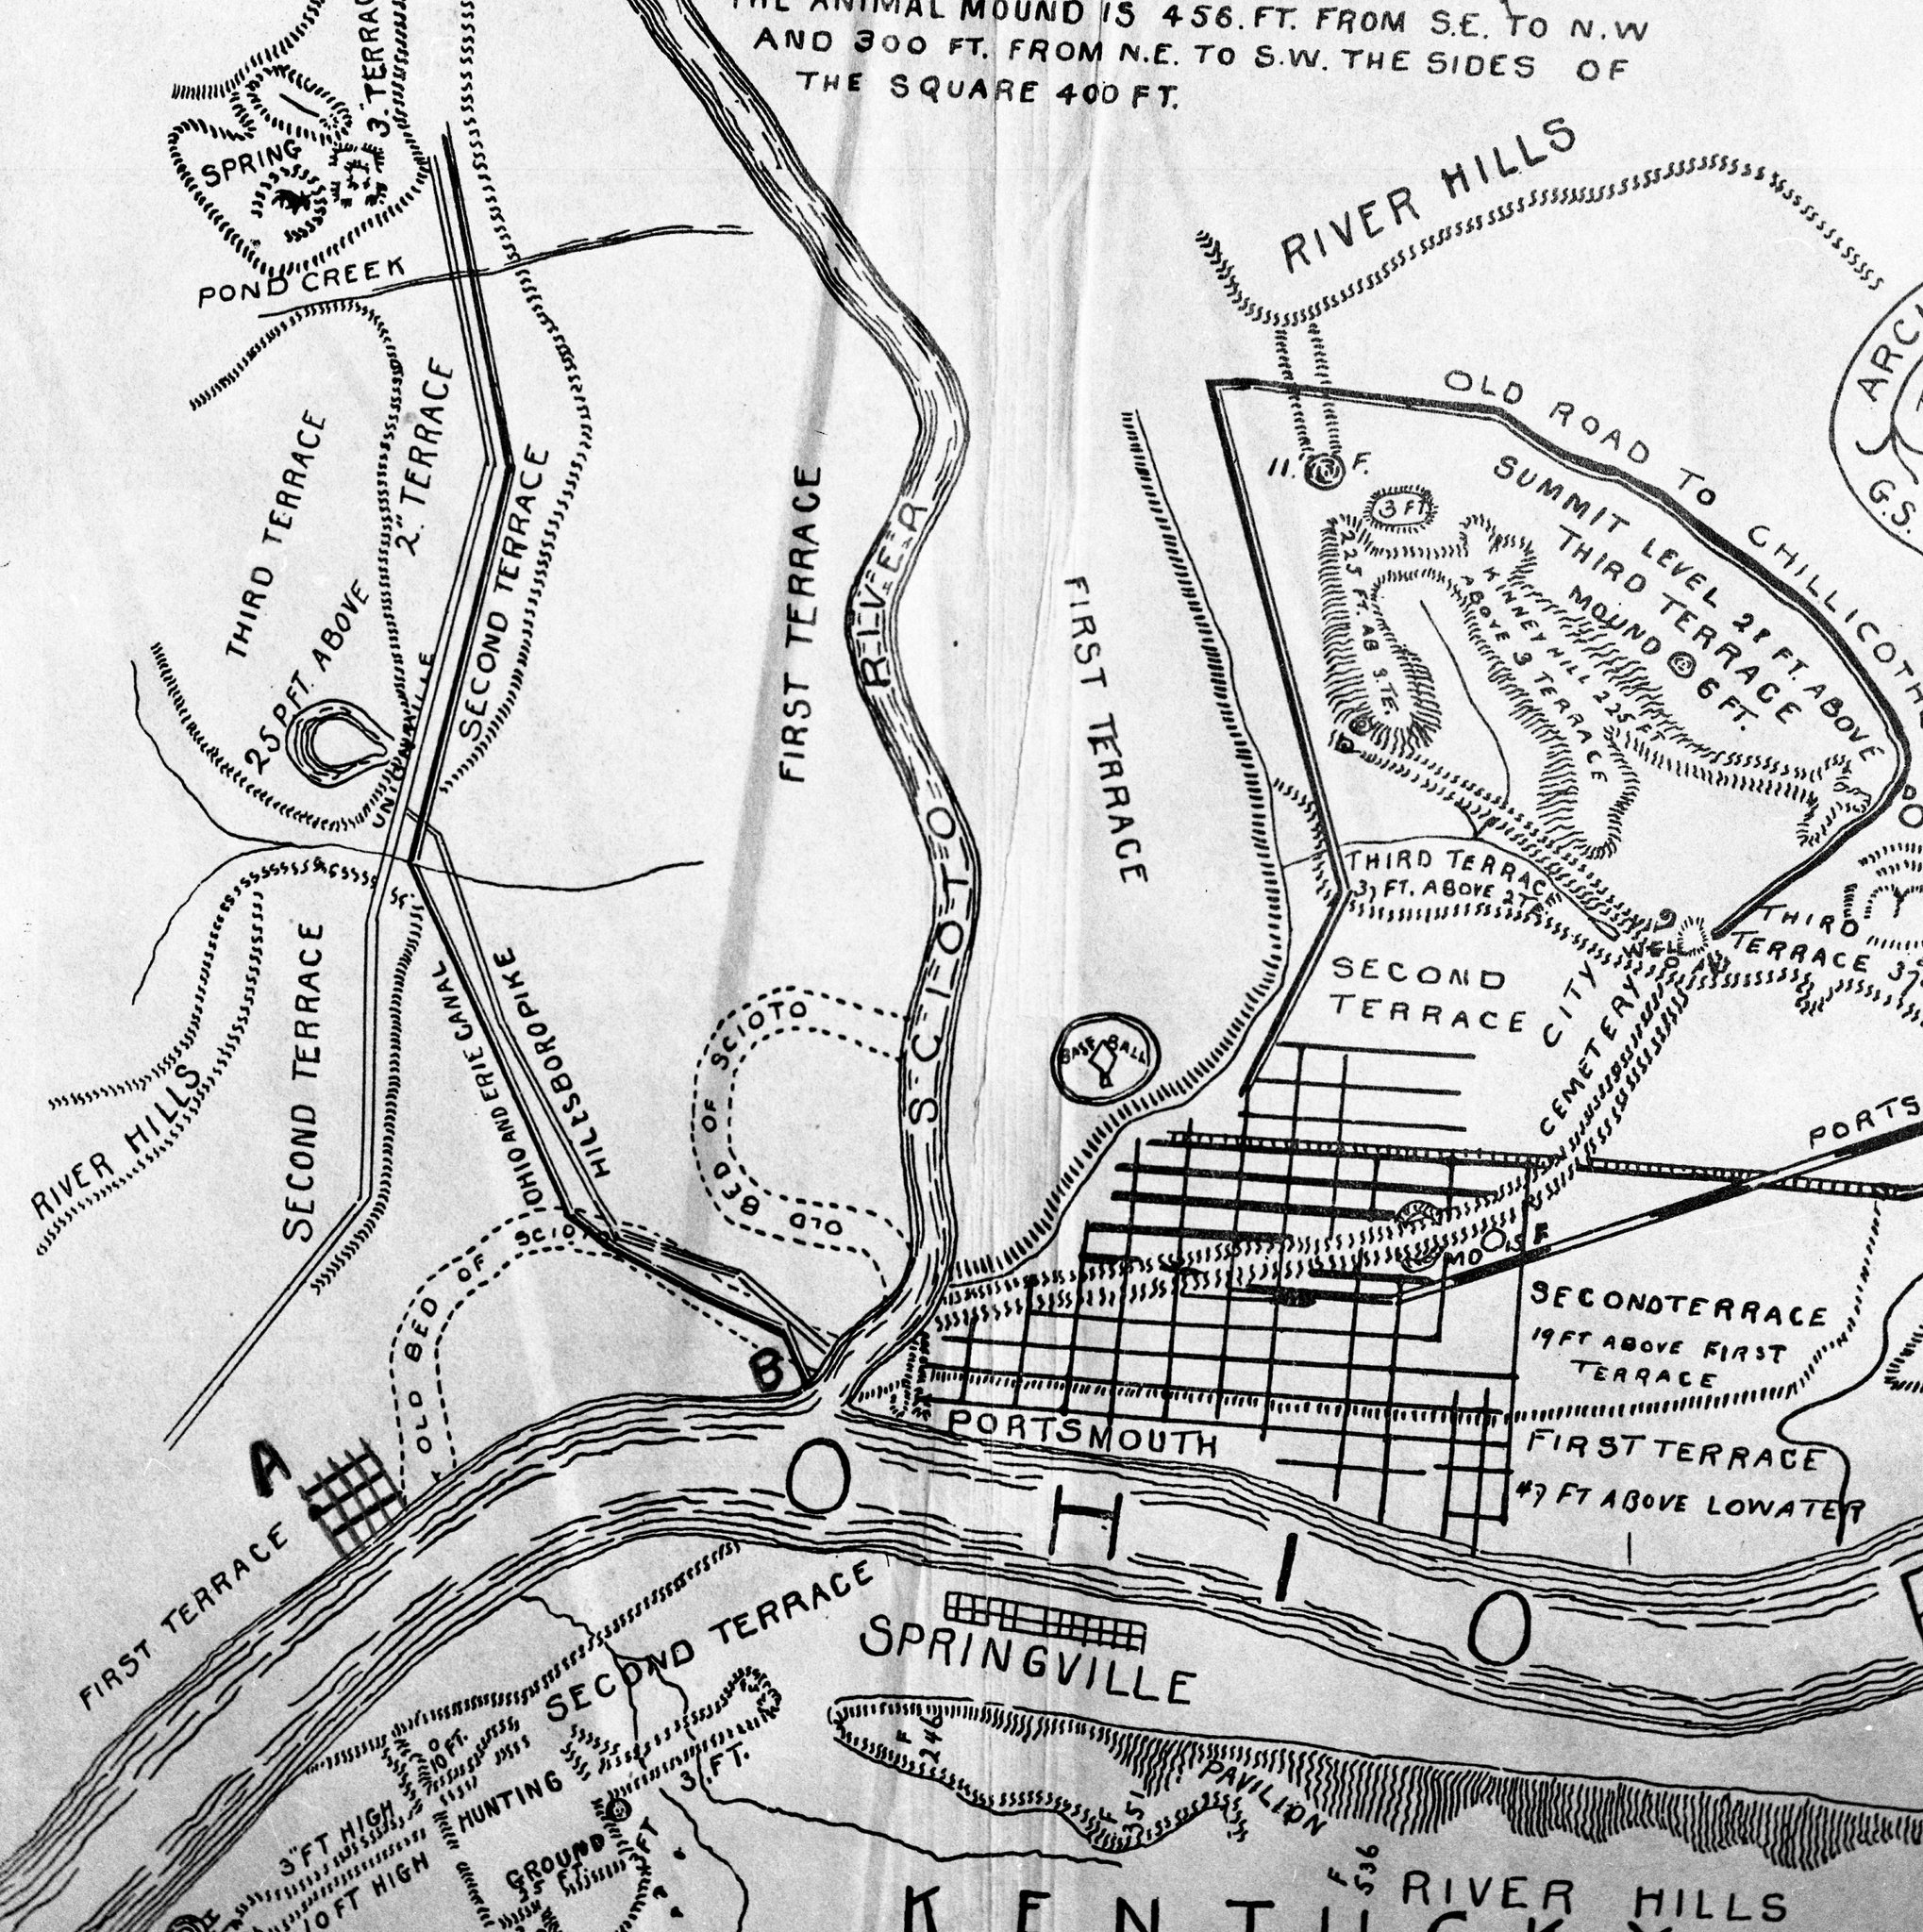 THE ANIMAL MOUND IS 456. FT. FROM S.E. TO N.W
AND 300 FT. FROM N.E. TO S.W. THE SIDES OF
THE SQUARE 400 FT.
3." TERRAC
SPRING
POND CREEK
RIVER HILLS
ARC
G.S.
OLD ROAD TO CHILLICOTHE
11. F.
3 FT
SUMMIT LEVEL 28 FT. ABOVE
THIRD TERRACE
MOUND 6 FT.
225 FT. AB 3. TE.
KINNEY HILL 225 FT
ABOVE 3 TERRACE
THIRD TERRACE
2." TERRACE
SECOND TERRACE
25 PT. ABOVE
FIRST TERRACE
SCIOTO RIVER
FIRST TERRACE
THIRD TERRAC
37 FT. ABOVE 2 TE
THIRD
TERRACE 37
SECOND
TERRACE
CITY
CEMETERY
SECOND TERRACE
OHIO AND ERIE CANAL
HILLSBORO PIKE
OLD BED OF SCIOTO
BASE BALL
RIVER HILLS
PORTS
OLD BED OF SCIOTO
MO 15 F
SECOND TERRACE
19 FT ABOVE FIRST
TERRACE
B
PORTSMOUTH
A
FIRST TERRACE
47 FT ABOVE LOWATER
OHIO
FIRST TERRACE
SECOND TERRACE
SPRINGVILLE
10 FT.
31. FT.
F 246
PAVILION
F 351
HUNTING
GROUND
3" FT HIGH
10 FT HIGH
F 536
RIVER HILLS
KENTUCKY